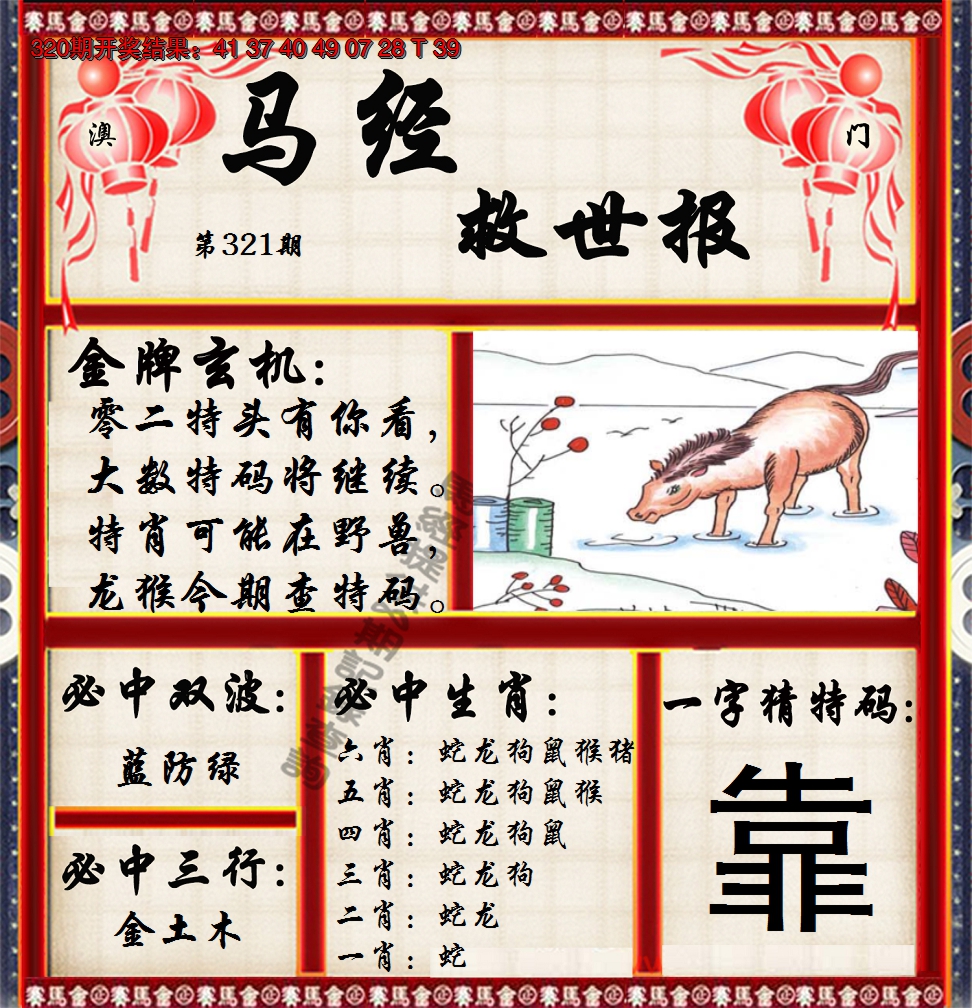 320期开奖结果：41 37 40 49 07 28 T 39
澳
门
马经
救世报
第321期
金牌玄机：
零二特头有你看，
大数特码将继续。
特肖可能在野兽，
龙猴今期查特码。
必中双波：
蓝防绿
必中三行：
金土木
必中生肖：
六肖：蛇龙狗鼠猴猪
五肖：蛇龙狗鼠猴
四肖：蛇龙狗鼠
三肖：蛇龙狗
二肖：蛇龙
一肖：蛇
一字猜特码：
靠